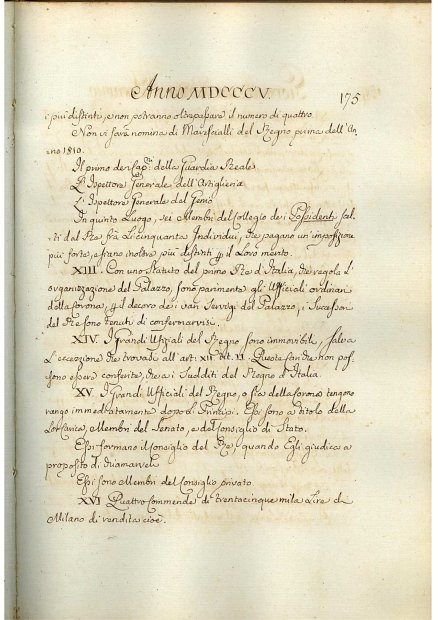 Anno MDCCCV.
175
i più distinti, e non potranno oltrepassare il numero di quattro.
Non vi sarà nomina di Marescialli del Regno prima dell'An,,
no 1810.
Il primo de' Cap.ⁿⁱ della Guardia Reale
L'Ispettore Generale dell'Artiglieria
L'Ispettore Generale del Genio
In quinto Luogo, sei Membri del Collegio dei Possidenti scel,,
ti dal Re frà li cinquanta Individui, che pagano un'imposizione
più forte, e siano inoltre più distinti per il loro merito.
XIII. Con uno Statuto del primo Re d'Italia, che regola l'
organizzazione del Palazzo, sono parimente gli Uffiziali ordinari
della Corona, per il decoro dei varj Servigi del Palazzo, i Successori
del Re sono tenuti di conformarvisi.
XIV. I Grandi Uffiziali del Regno sono immovibili, salva
l'eccezione che trovasi all'art: XII. tit. II. Queste cariche non pos,,
sono essere conferite, che a i Sudditi del Regno d'Italia.
XV. I Grandi Uffiziali del Regno, o sia della Corona tengono
rango immediatamente dopo di Principi. Essi sono a titolo della
lor carica, Membri del Senato, e del Consiglio di Stato.
Essi formano il Consiglio del Re, quando Egli giudica a
proposito di chiamarveli
Essi sono Membri del Consiglio privato.
XVI. Quattro Commende di trentacinque mila Lire di
Milano di rendita cioè.